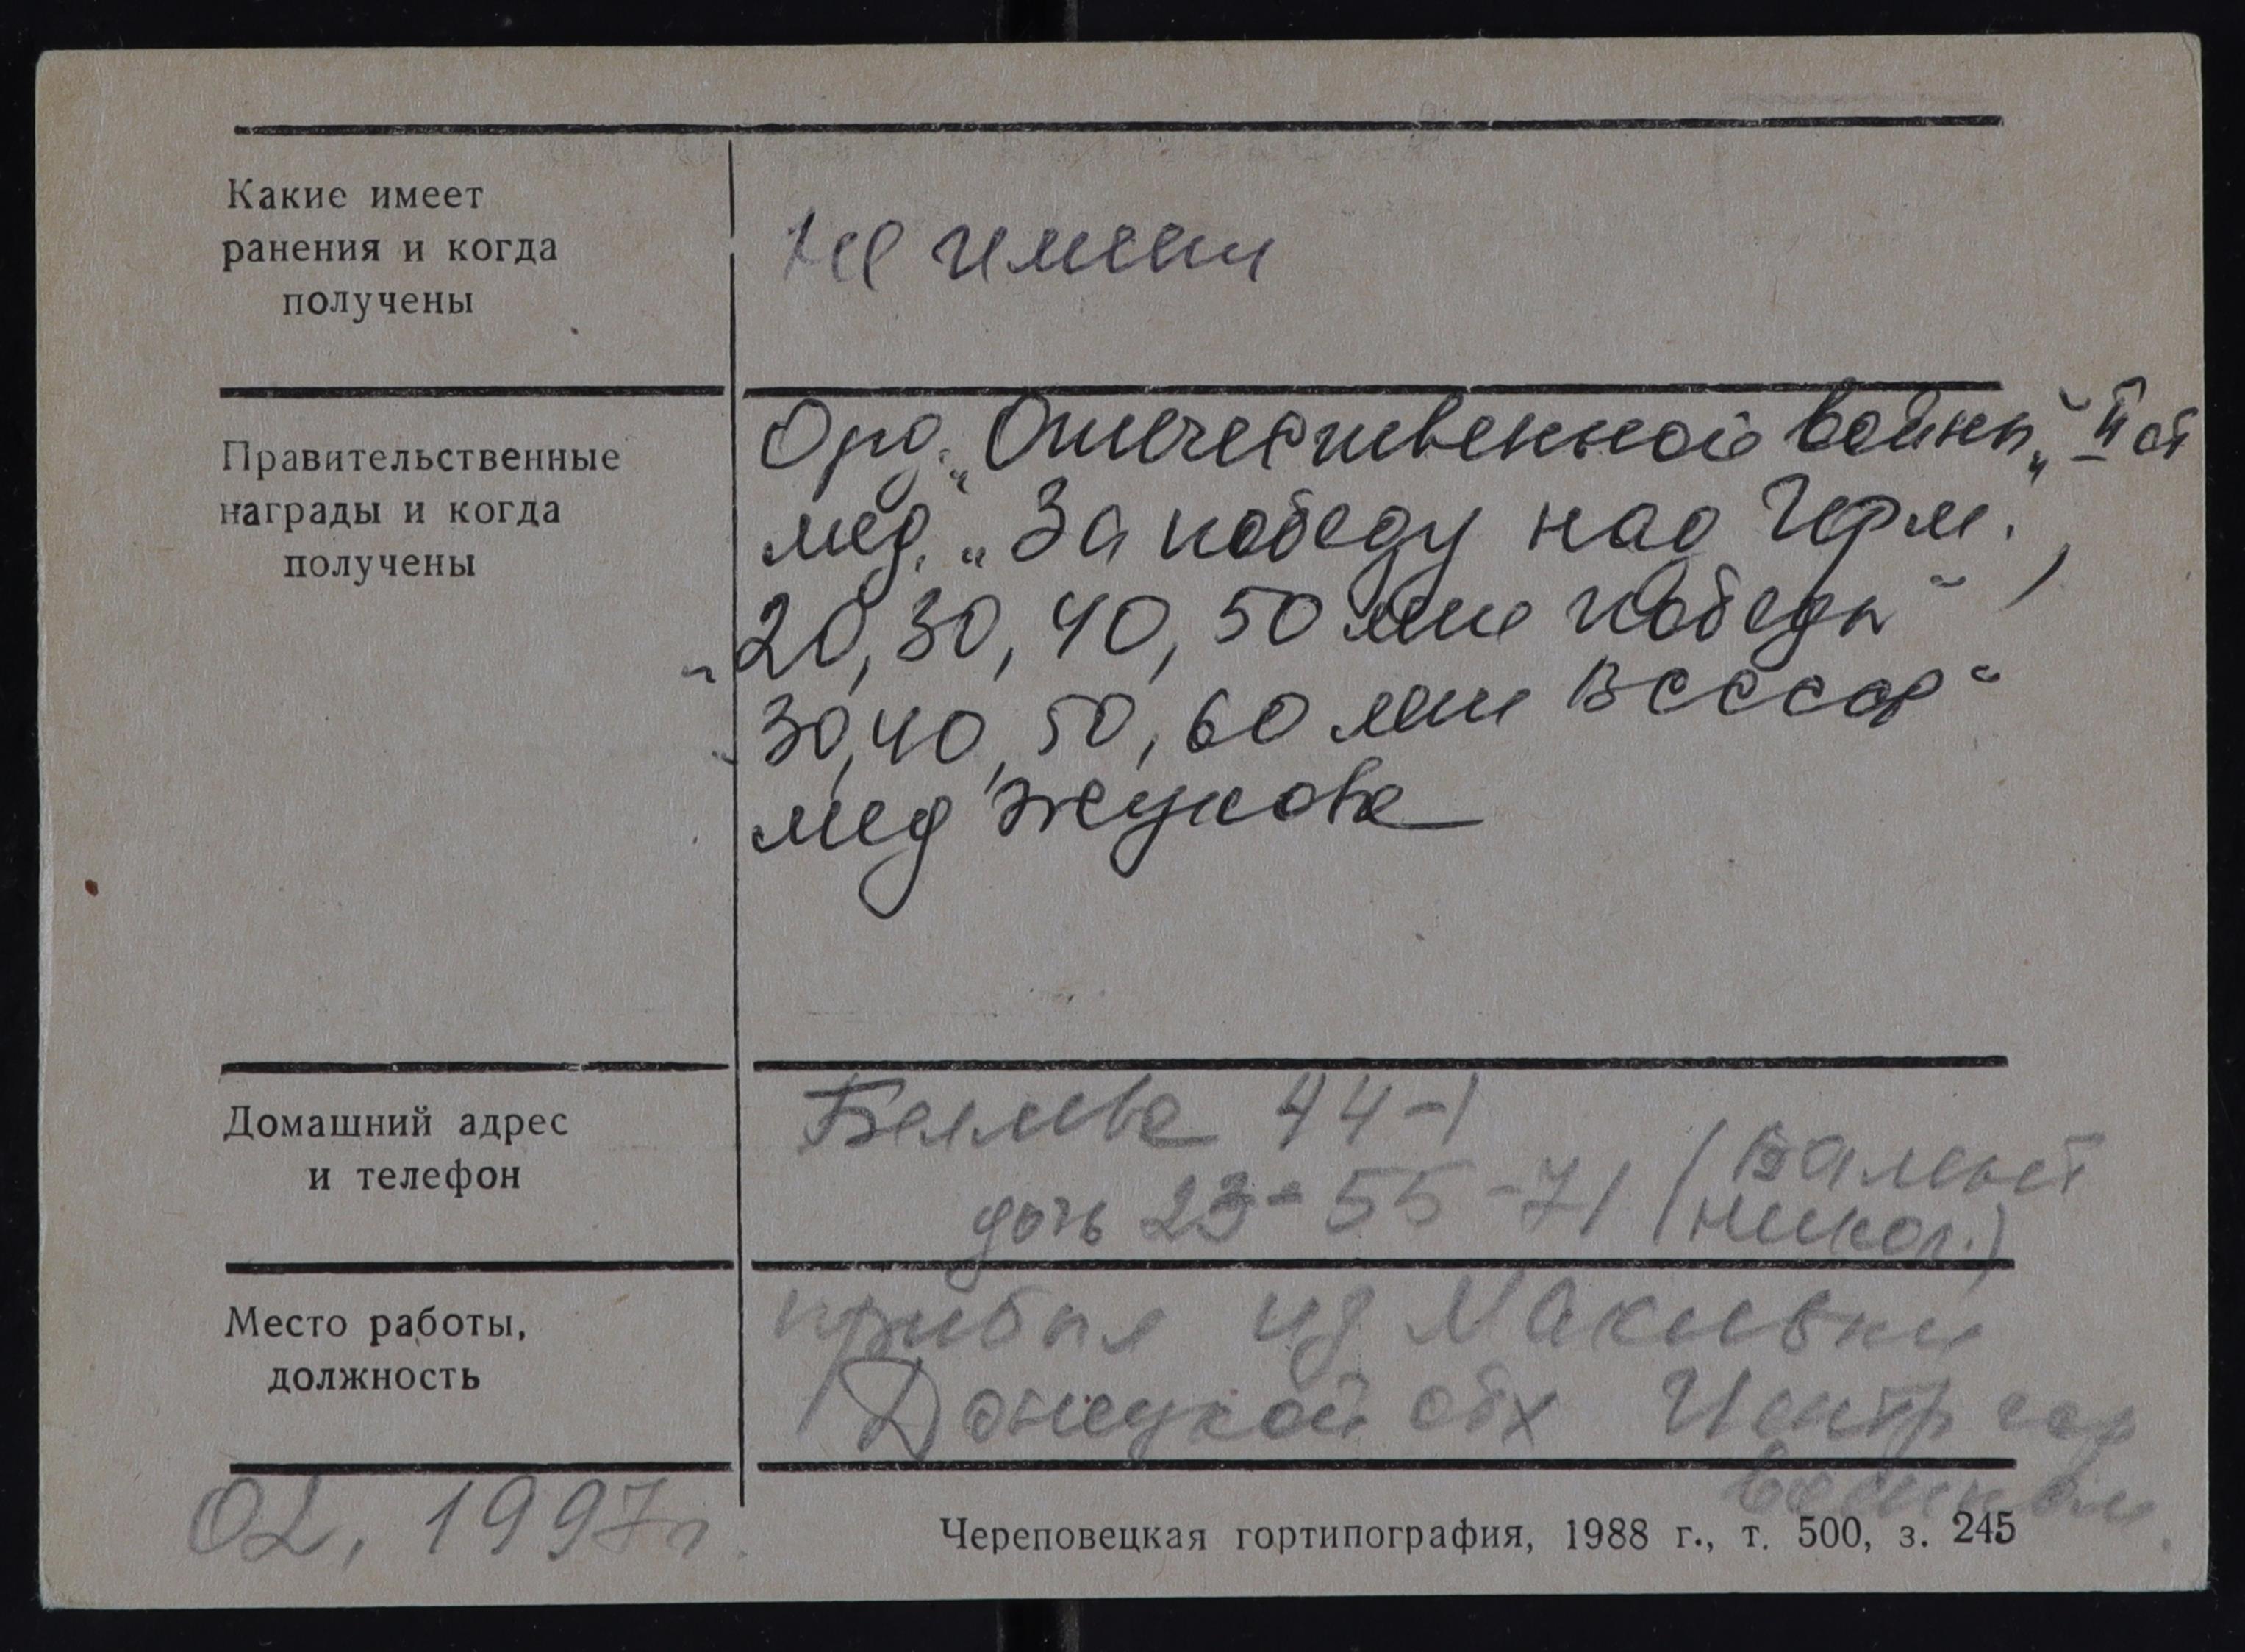 Какие имеет
ранения и когда
получены
не имеет
Правительственные
награды и когда
получены
Орд. „Отечественной войны" II ст
мед. „За победу над Герм.,
"20, 30, 40, 50 лет победы",
"30, 40, 50, 60 лет ВССССР"
мед Жукова
Домашний адрес
и телефон
Беляева 44-1
дочь 23-55-71 (Валент
Никол.)
Место работы,
должность
прибыл из Макивки
Донецкой обл Центр гор
военком.
02. 1997г.
Череповецкая гортипография, 1988 г., т. 500, з. 245